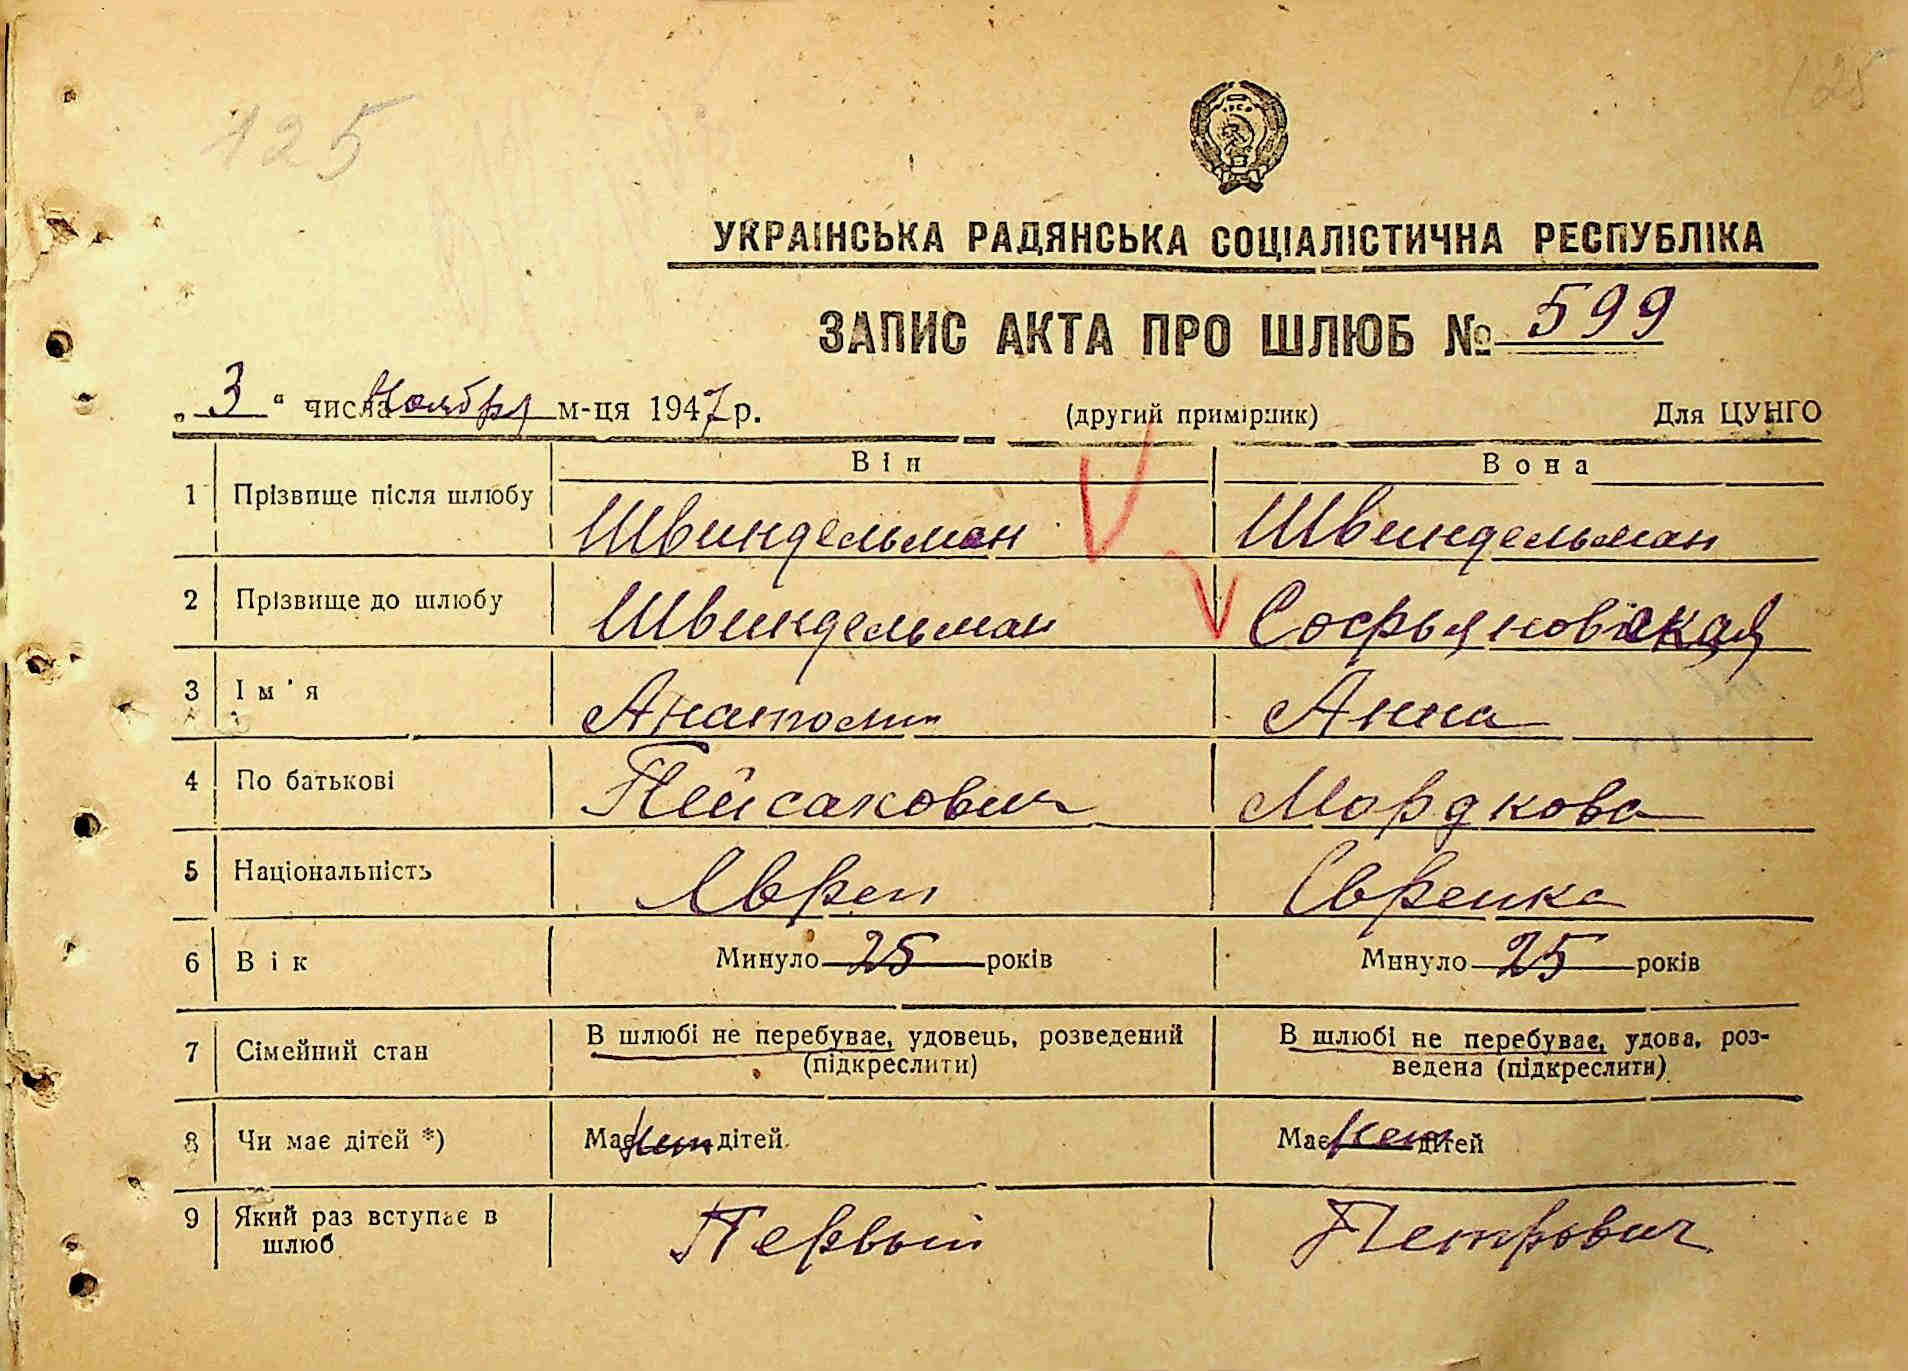 125
125
УКРАЇНСЬКА РАДЯНСЬКА СОЦІАЛІСТИЧНА РЕСПУБЛІКА
ЗАПИС АКТА ПРО ШЛЮБ № 599
„3“ числа Ноября м-ця 1947 р. (другий примірник) Для ЦУНГО
Він Вона
1 Прізвище після шлюбу Швиндельман Швиндельман
2 Прізвище до шлюбу Швиндельман Софьяновская
3 Ім'я Анатолий Анна
4 По батькові Пейсахович Мордкова
5 Національність Еврей Еврейка
6 Вік Минуло 25 років Минуло 25 років
7 Сімейний стан В шлюбі не перебуває, удовець, розведений В шлюбі не перебуває, удова, роз-
(підкреслити) ведена (підкреслити)
8 Чи має дітей *) Має нет дітей Має нет дітей
9 Який раз вступає в Первый Петрович
шлюб